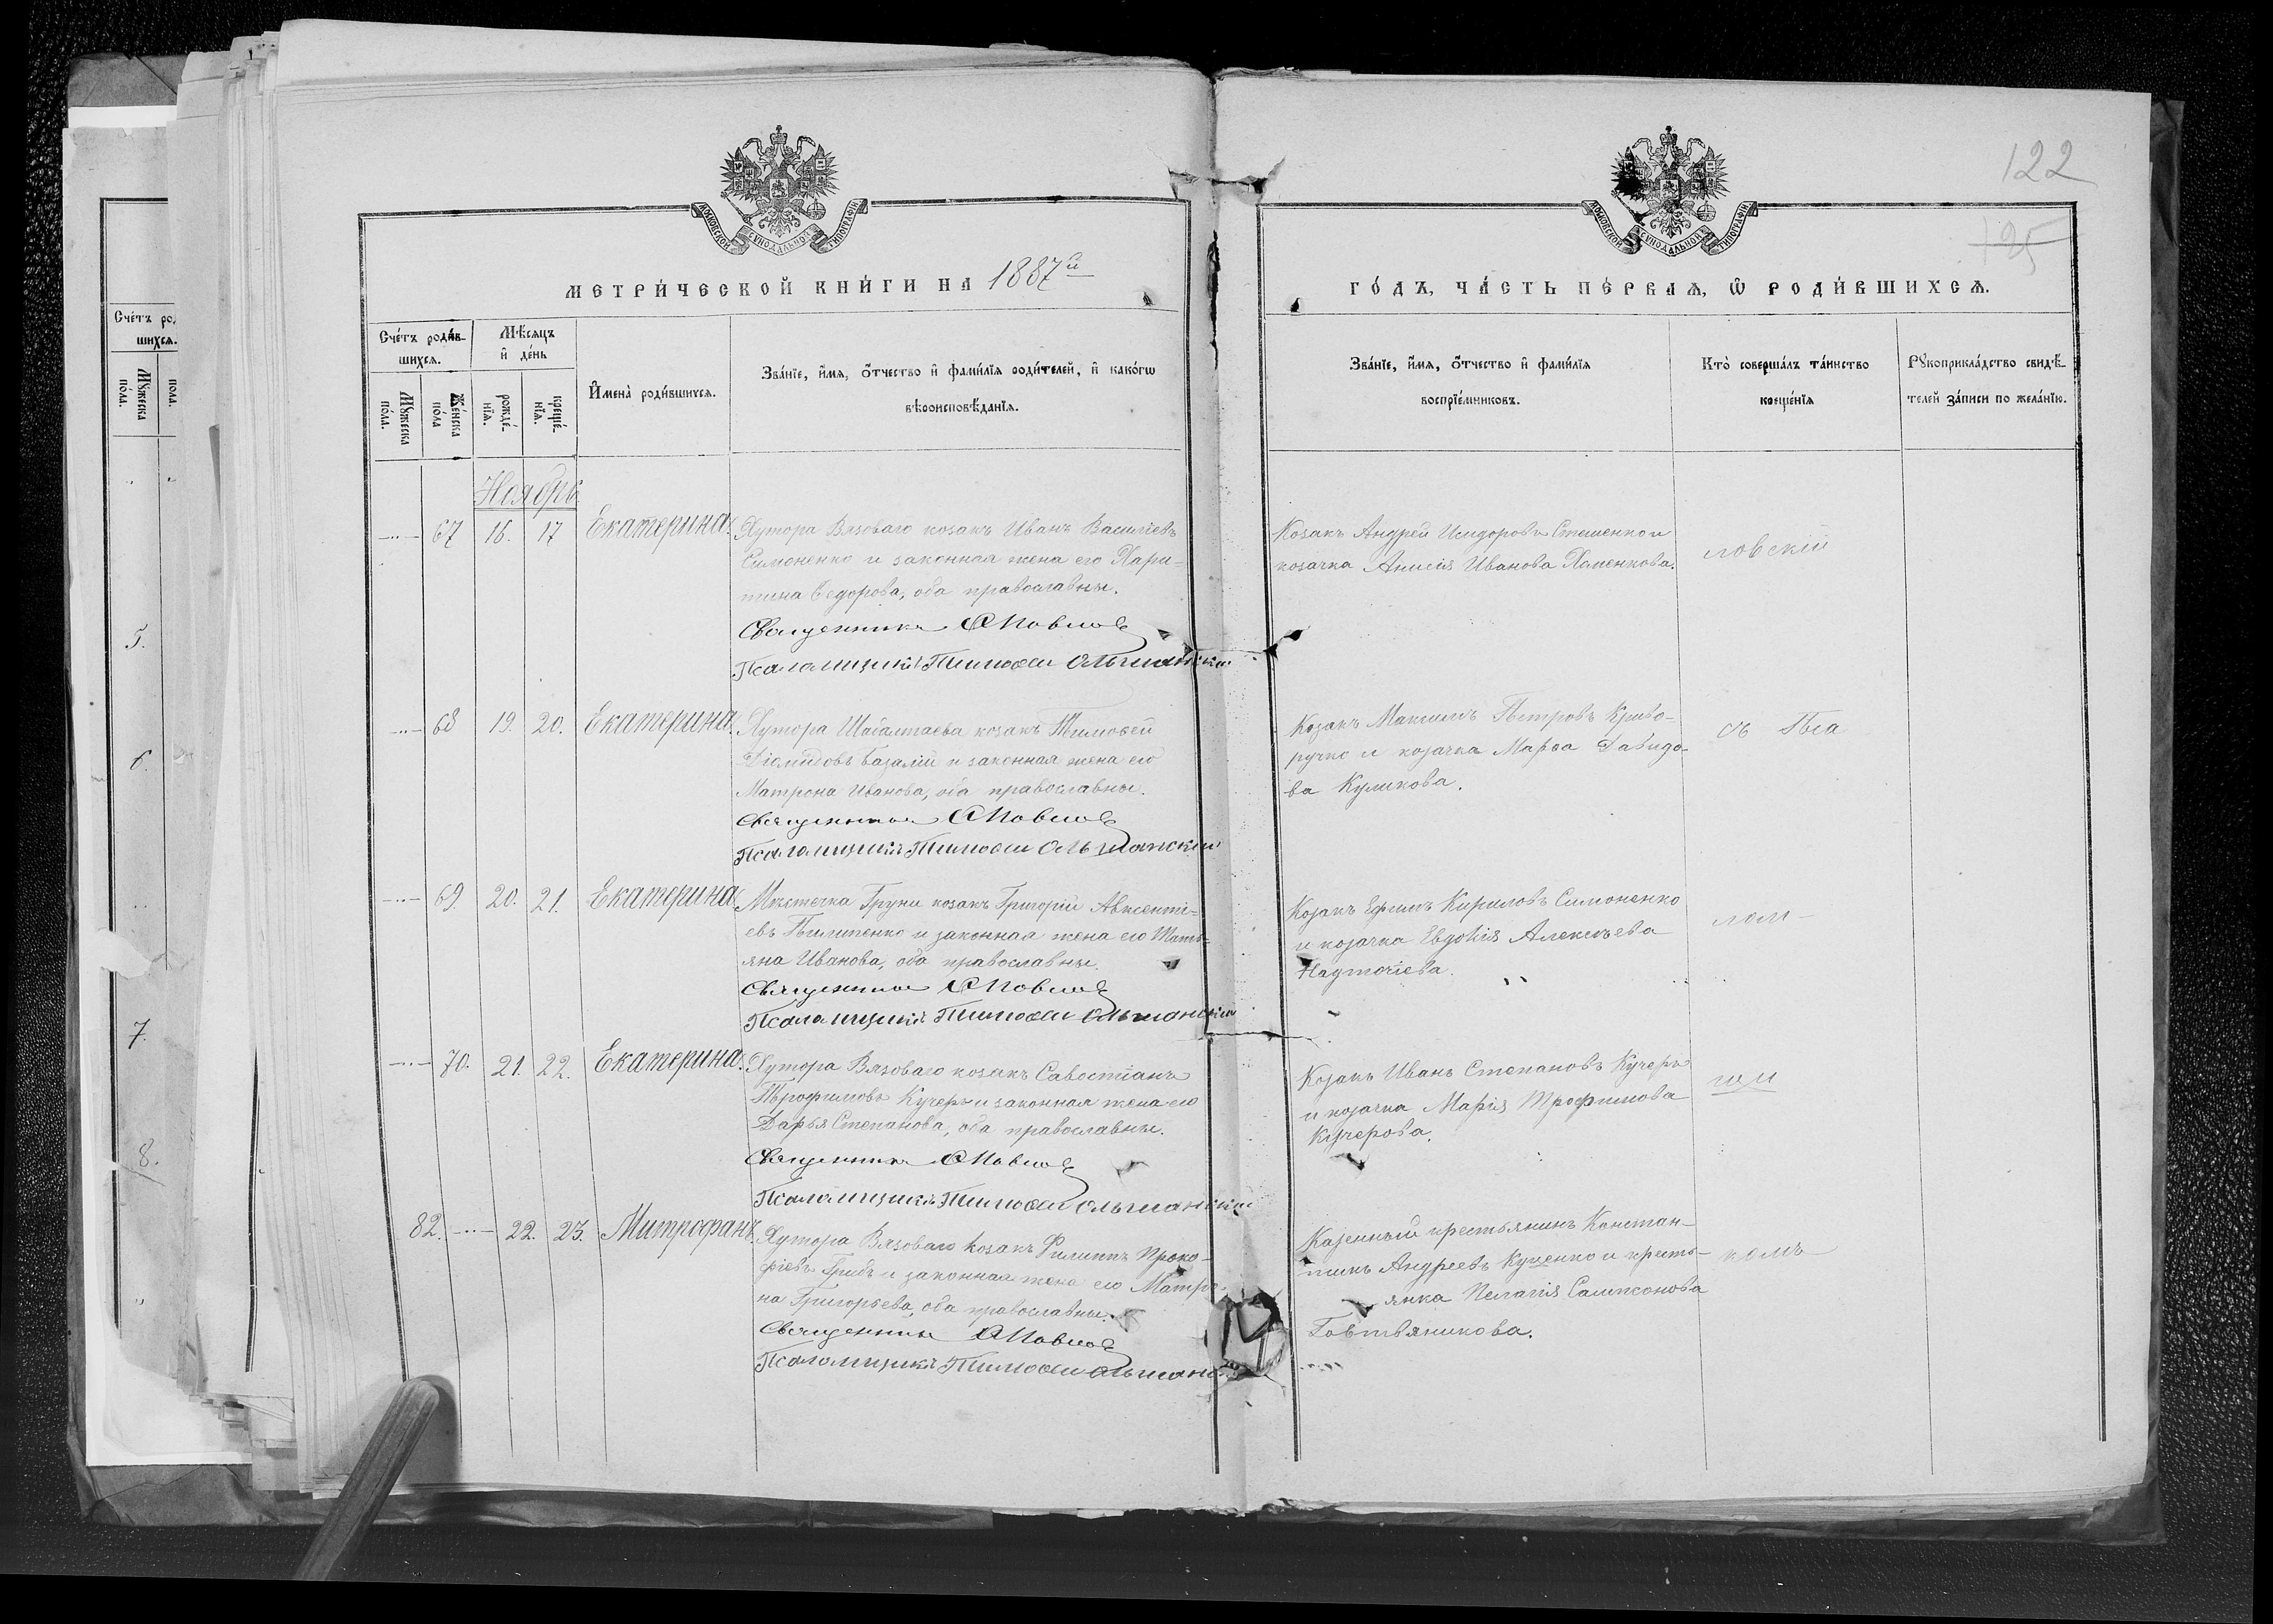 122
125
МОСКОВСКОЙ СѴНОДАЛЬНОЙ ТИПОГРАФІИ
МОСКОВСКОЙ СѴНОДАЛЬНОЙ ТИПОГРАФІИ
МЕТРИ́ЧЕСКОЙ КНИ́ГИ НА 1887й
ГО́ДЪ, ЧА́СТЬ ПЕ́РВАѦ, Ѿ РОДИ́ВШИХСѦ.
Сче́тъ роди́в-
шихсѧ.
Мꙋ́жеска по́ла.
Же́нска по́ла
Мѣ́сѧцъ
и҆ де́нь
рожде́-
нїѧ.
креще́-
нїѧ.
И҆мена̀ роди́вшихсѧ.
Зва́нїе, и҆́мѧ, о҆́тчество и҆ фами́лїѧ роди́телей, и҆ како́гѡ
вѣроисповѣ́данїѧ.
Зва́нїе, и҆́мѧ, о҆́тчество и҆ фами́лїѧ
воспрїе́мниковъ.
Кто̀ соверша́лъ та́инство
креще́нїѧ
Рꙋкоприкла́дство свидѣ́-
телей за́писи по жела́нїю.
Ноябрь
67 16. 17 Екатерина
Хутора Вязоваго козакъ Иванъ Василіевъ
Симоненко и законная жена его Хари-
тина Ѳедорова, оба православны.
Священникъ
Псаломщикъ Тимоѳей Ольшанскій
Козакъ Андрей Исидоровъ Стешенко и
козачка Анисія Иванова Хоменкова.
ловскій
68 19. 20. Екатерина
Хутора Шабалтаева козакъ Тимоѳей
Діомидовъ Базалій и законная жена его
Матрона Иванова, оба православны.
Священникъ
Псаломщикъ Тимоѳей Ольшанскій
Козакъ Максимъ Петровъ Криво-
ручко и козачка Марѳа Давидо-
ва Куликова.
69. 20. 21. Екатерина
Мѣстечка Груни козакъ Григорій Авксенті-
евъ Пилипенко и законная жена его Тать-
яна Иванова, оба православны.
Священникъ
Псаломщикъ Тимоѳей Ольшанскій
Козакъ Ефимъ Кириловъ Симоненко
и козачка Евдокія Алексѣева
Наутоліева.
70. 21. 22. Екатерина
Хутора Вязоваго козакъ Савостіанъ
Трофимовъ Кучеръ и законная жена его
Дарья Степанова, оба православны.
Священникъ
Псаломщикъ Тимоѳей Ольшанскій
Козакъ Иванъ Степановъ Кучеръ
и козачка Марія Трофимова
Кучерова.
82. 22. 23. Митрофанъ
Хутора Вязоваго козакъ Филиппъ Проко-
фіевъ Грибъ и законная жена его Матро-
на Григорьева, оба православны.
Священникъ
Псаломщикъ Тимоѳей Ольшанс
Казенный крестьянинъ Констан-
тинъ Андреевъ Куценко и кресть-
янка Пелагія Сампсонова
Говтвяникова.
Сче́тъ ро
шихсѧ.
Мꙋ́жеска по́ла.
пола.
5.
6.
7.
8.